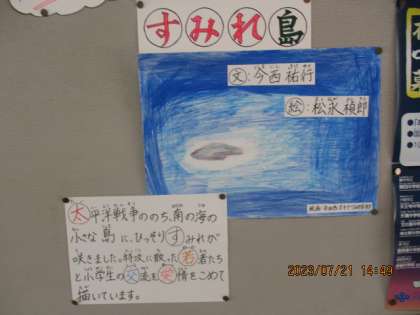 すみれ島
文:今西祐行
絵:松永禎郎
太平洋戦争ののち、南の海の
小さな島に、ひっそりすみれが
咲きました。特攻に散った若者たち
と小学生の交流を愛情をこめて
描いています。
2023/07/21 14:49